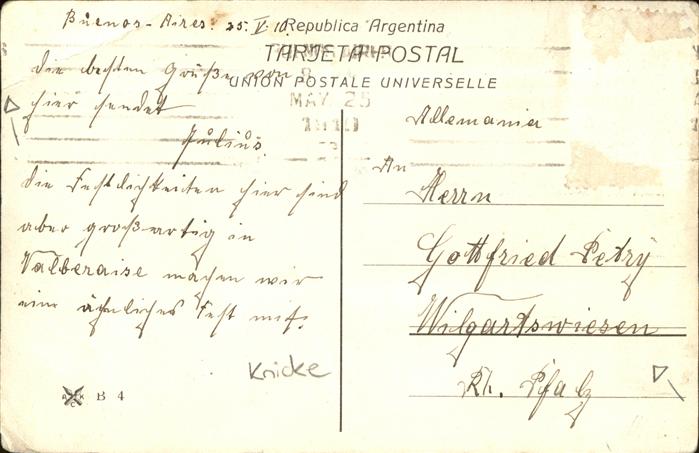 Buenos-Aires. 25. V. 10.
Republica Argentina
TARJETA POSTAL
UNION POSTALE UNIVERSELLE
MAY 25
1910
die besten Grüße von
hier sendet
Julius.
Die Festlichkeiten hier sind
aber großartig in
Valberaise machen wir
eine ähnliches Fest mit.
Knicke
B 4
Allemania
An
Herrn
Gottfried Petry
Wilgartswiesen
Rh. Pfalz